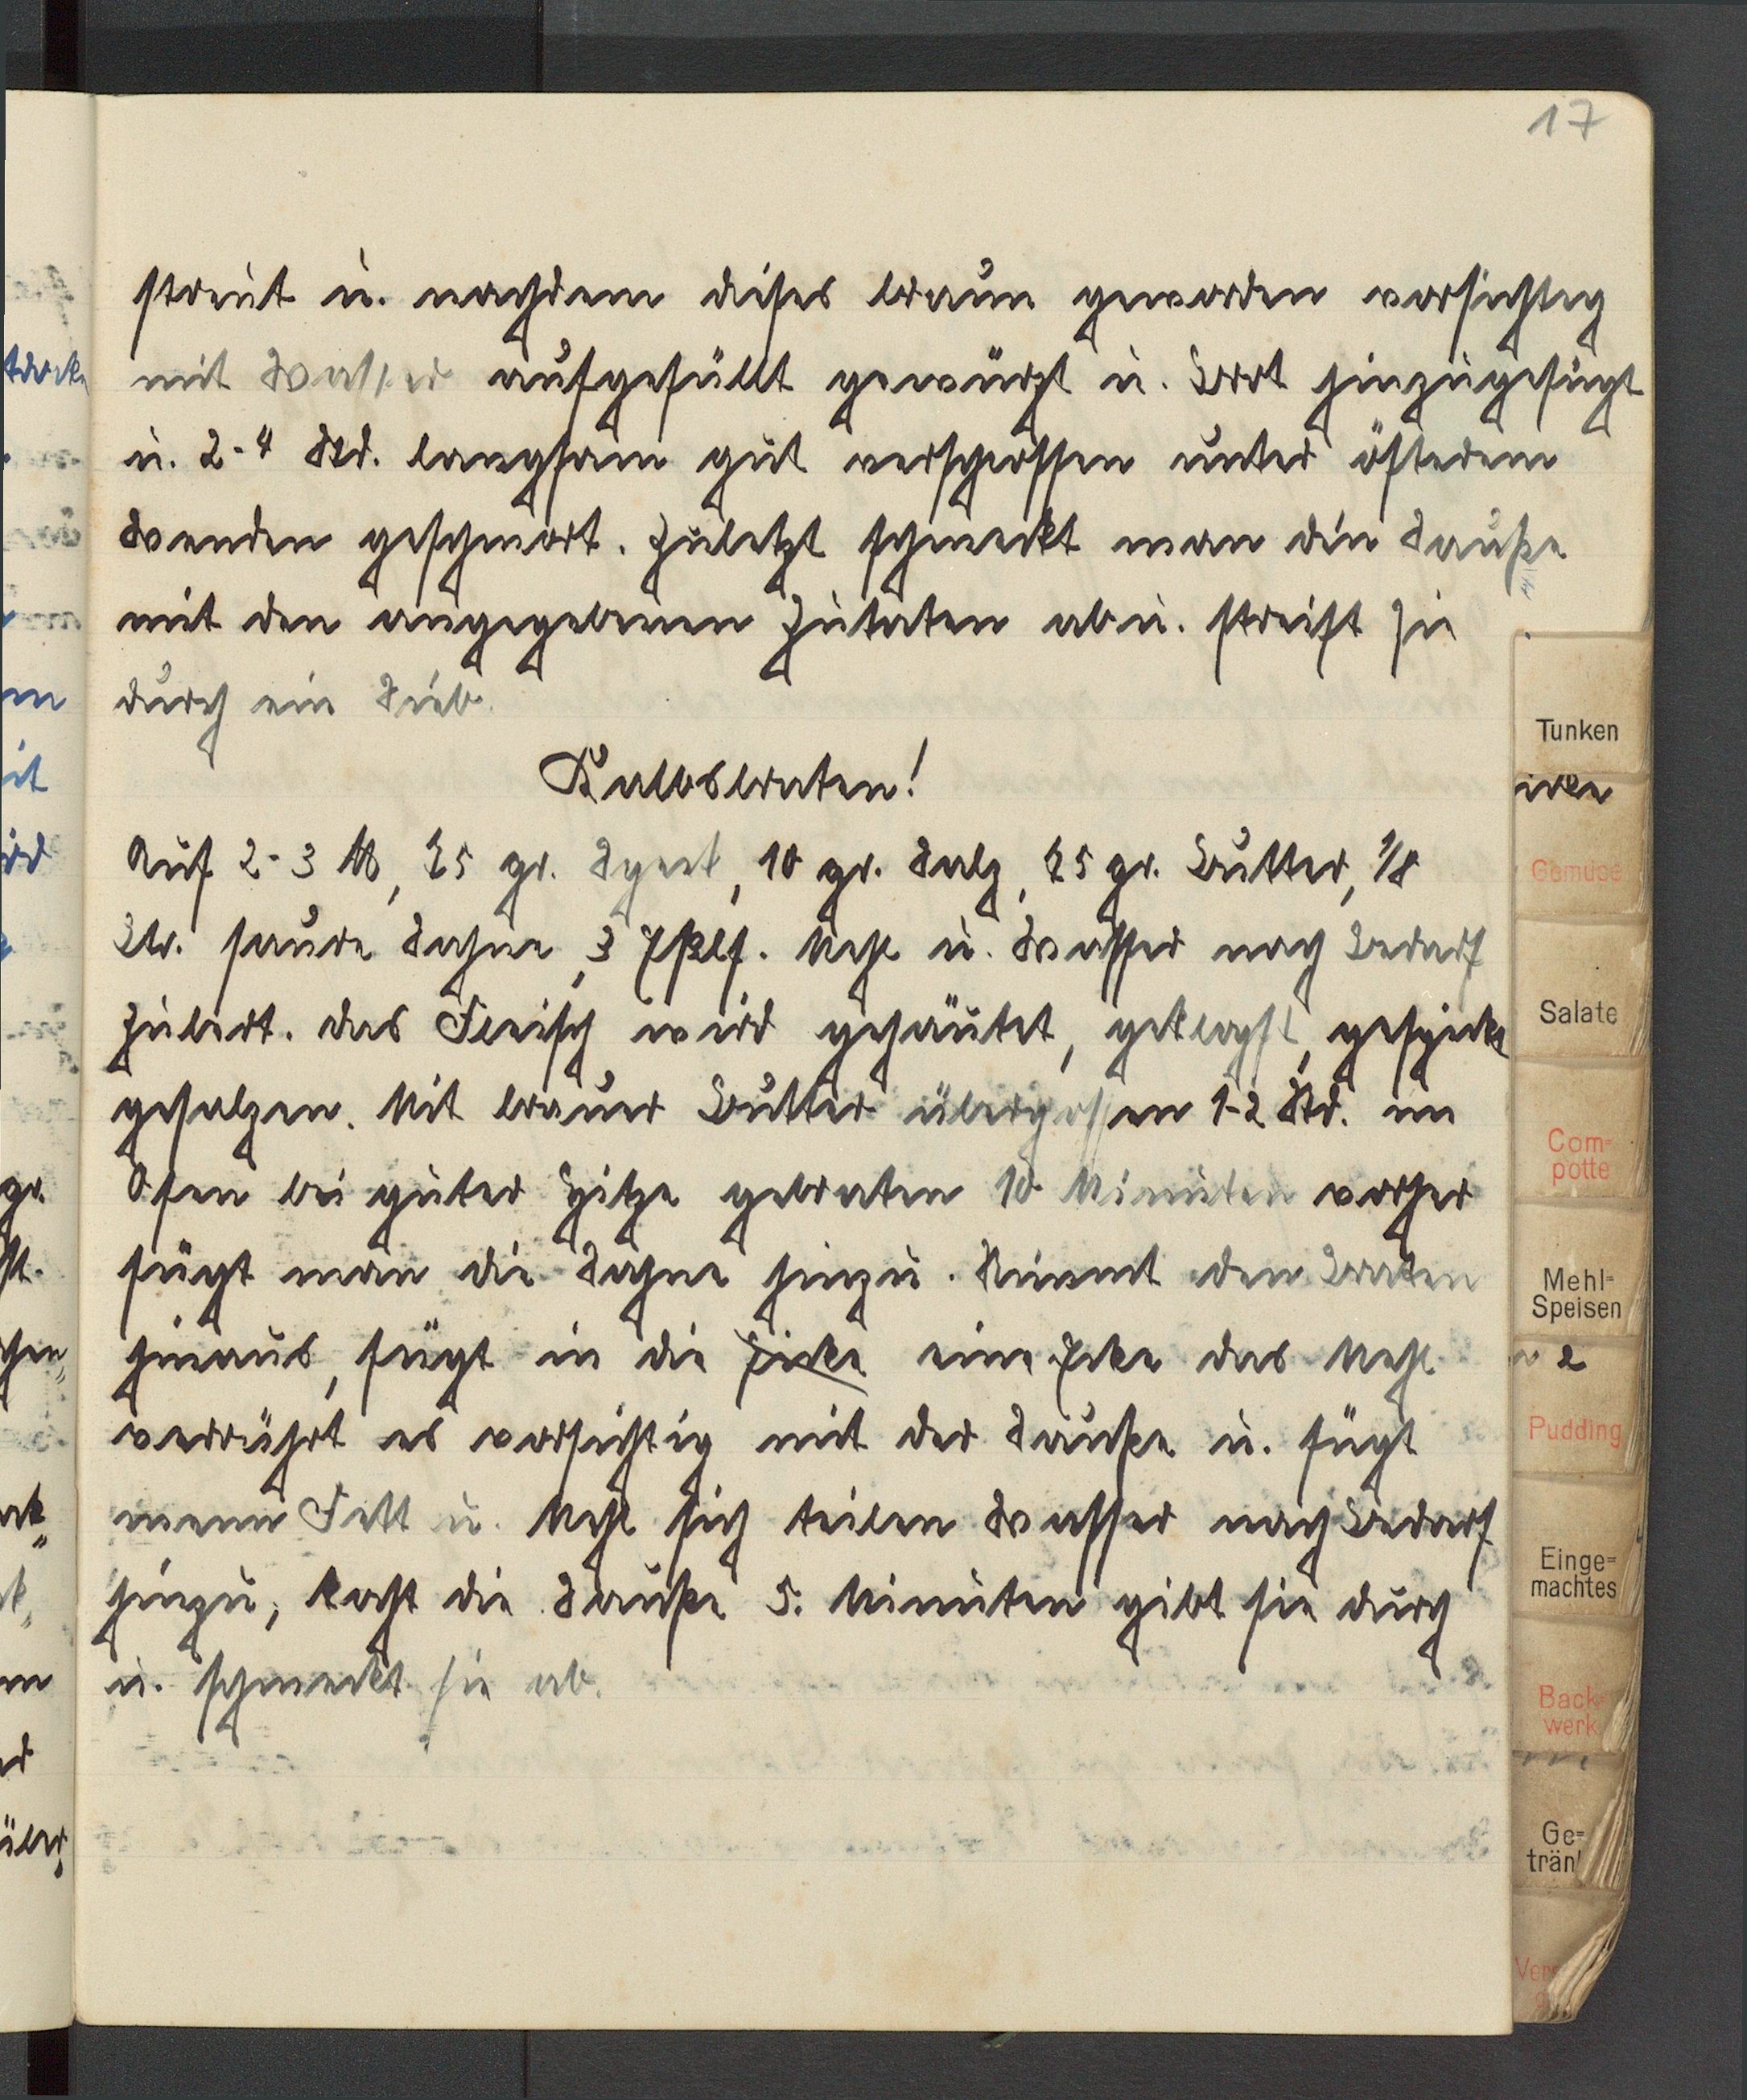 17
streut u. nachdem dises braun geworden vorsichteg
mit Wasser aufgefüllt gewürzt u. Brot hinzugefügt
u. 2-4 Std. langsam gut verschlossen unter öfterem
Wenden geschmort. Zuletzt schmeckt man die Sauße
mit den angegebenen Zutaten ab u. streift sie
durch ein Sieb.
Kalbsbraten!
Auf 2-3 ℔, 25 gr. Speck, 10 gr. Salz, 25 gr. Butter, 1/8
Ltr. saure Sahne, 3 Mehl u. Wasser nach Bedarf
Zubert. das Fleisch wird gehäutet, geklopft, gespickt
gesalzen. Mit brauer Butter übergossen 1-2 Std. im
Ofen bei guter Hitze gebraten 10 Minuten vorher
fügt man die Sahne hinzu. Nimmt den Braten
hinaus, fügt in die eine Ecke das Mehl
verrührt es vorsichtig mit der Sauße u. fügt
wenn Fett u. Mehl sich teilen Wasser nach Bedarf
hinzu, kocht die Sauße 5. Minuten gibt sie durch
u. schmeckt sie ab.
Tunken
Gemüse
Salate
Com-
potte
Mehl-
Speisen
Pudding
Einge-
machtes
Back-
werk
Ge-
trän